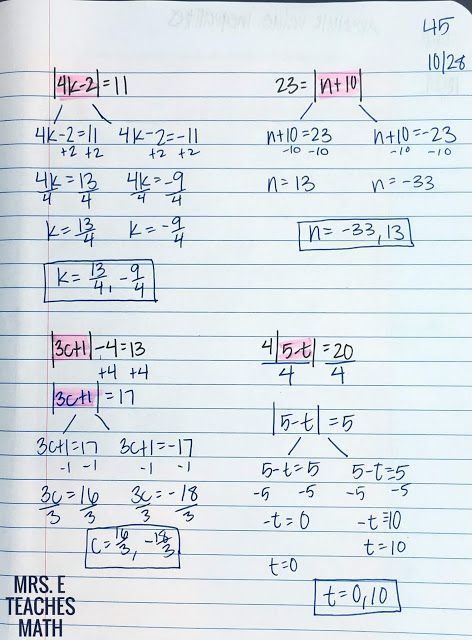 45
10/28
|4k-2|=11
4k-2=11 4k-2=-11
+2 +2 +2 +2
4k=13 4k=-9
4 4 4 4
k=13/4 k=-9/4
k=13/4, -9/4
23=|n+10|
n+10=23 n+10=-23
-10 -10 -10 -10
n=13 n=-33
n=-33,13
|3c+1|-4=13
+4 +4
|3c+1|=17
3c+1=17 3c+1=-17
-1 -1 -1 -1
3c=16 3c=-18
3 3 3 3
c=16/3, -18/3
4|5-t|=20
4 4
|5-t|=5
5-t=5 5-t=-5
-5 -5 -5 -5
-t=0 -t=-10
t=10
t=0
t=0,10
MRS. E
TEACHES
MATH